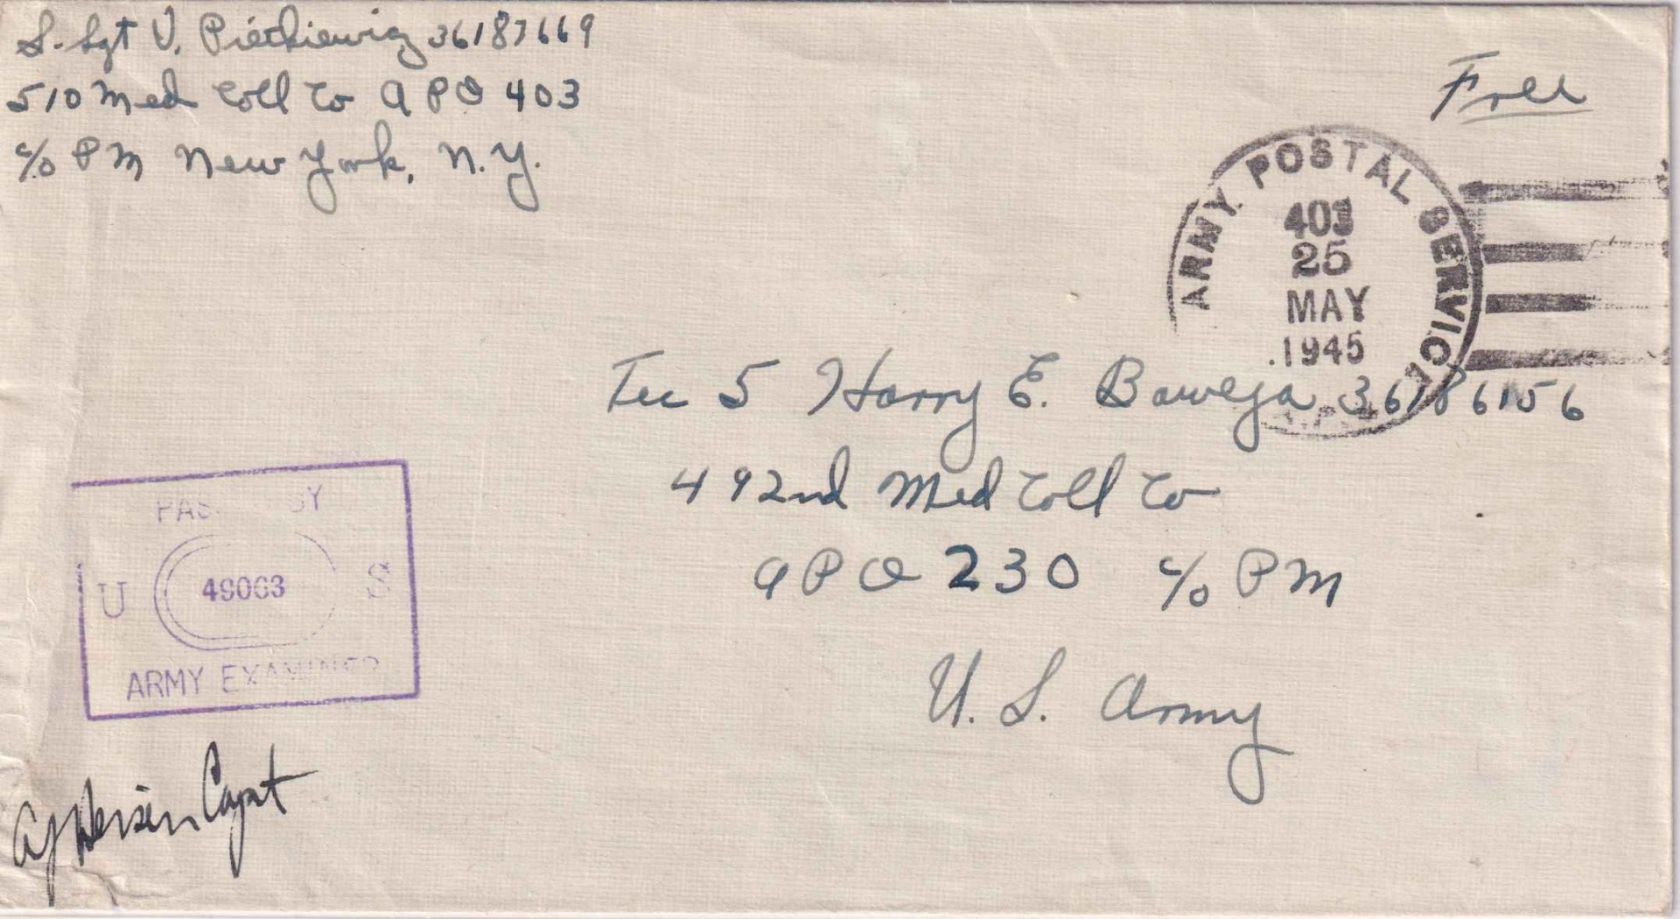 S. Sgt V. Pietkiewicz 36187669
510 Med Coll Co APO 403
c/o PM New York, N.Y.
Free
ARMY POSTAL SERVICE
403
25
MAY
1945
A.P.O.
Tec 5 Harry E. Baweja 36186156
492nd Med Coll Co
APO 230 c/o PM
U. S. Army
PASSED BY
U 49003 S
ARMY EXAMINER
Capt